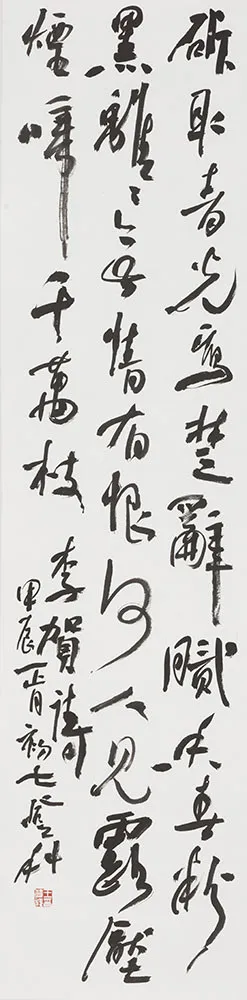 斫取青光寫楚辭膩香春粉
黑離々無情有恨何人見露壓
煙啼千萬枝 李賀詩
甲辰正月初七登科